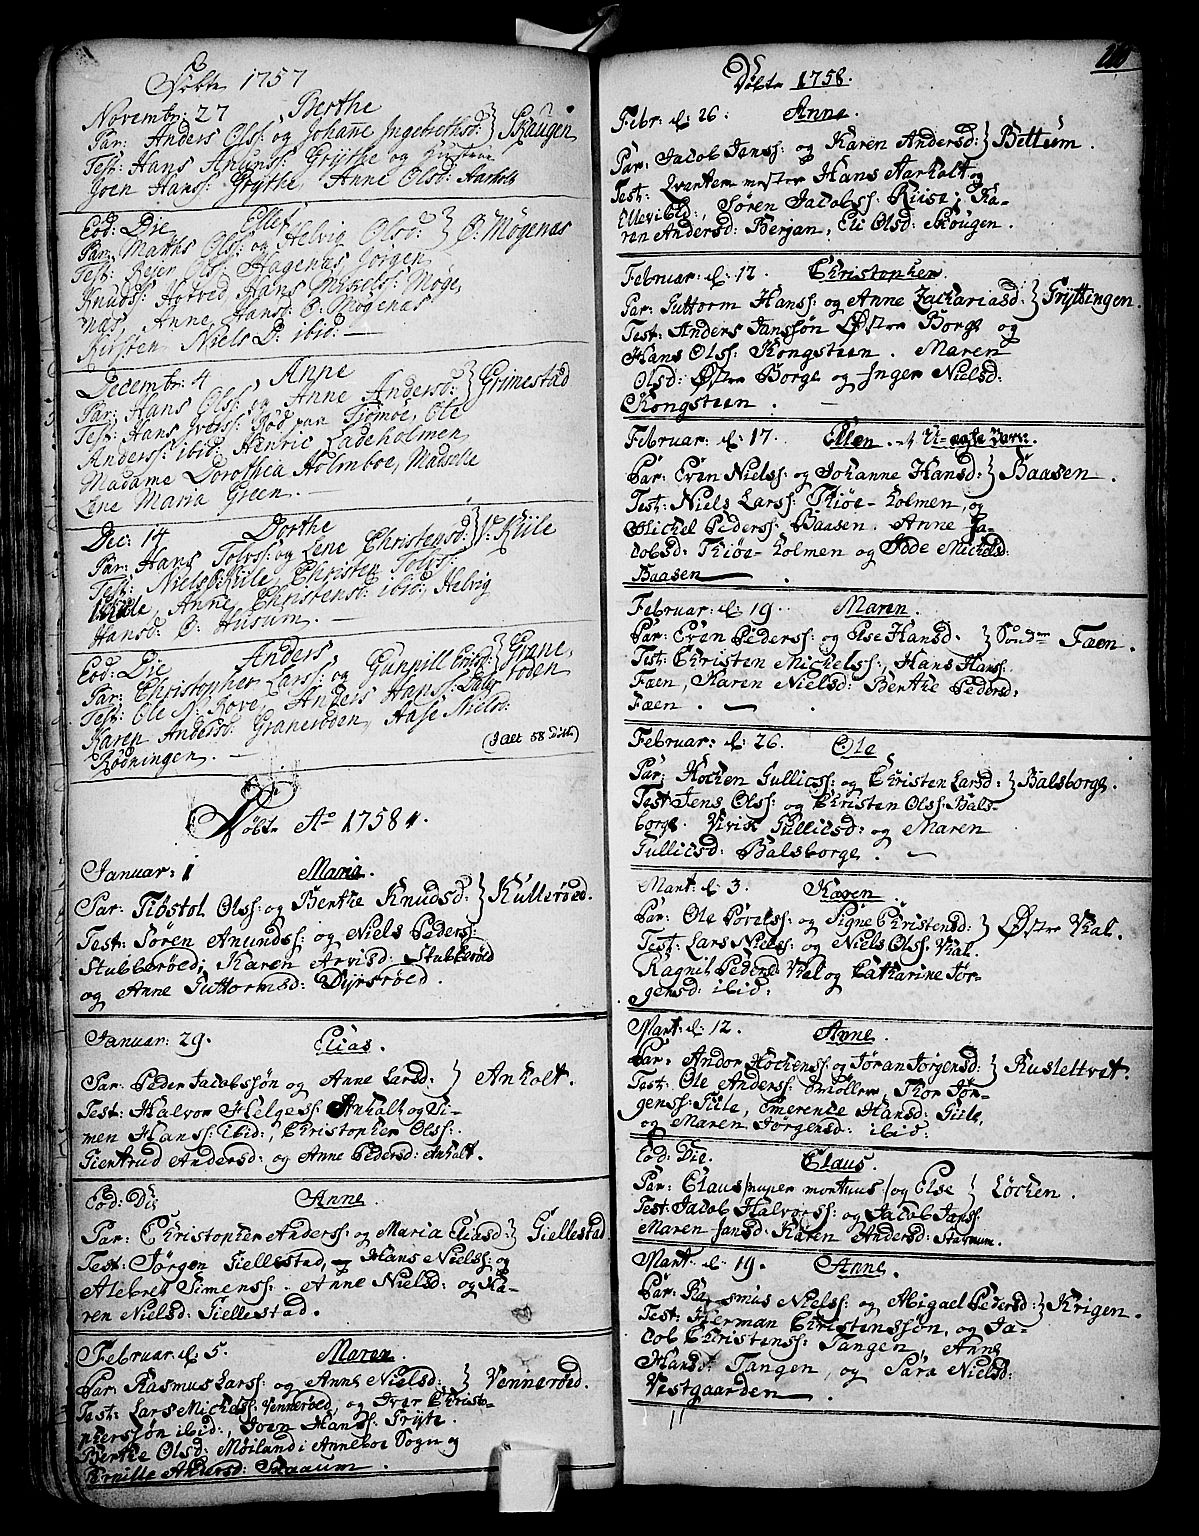 Døbte 1757
Novembr: 27 Berthe
Par: Anders Olss: og Johanne Ingebrethsd: } Skaugen
Test: Hans Anunss: Grythe og
Joen Hanss: Grythe, Anne Olsd: Aarholt
Eod: Die Ellef
Par: Mathis Olss: og Helvig Olsd: } Ø: Møgenæs
Test: Reier Olss: Hagenæs Jørgen
Knudss: Hotved Hans Michelss: Møge
næs, Anne Hansd: Ø: Møgenæs
Kirsten Niels D: ibid: —
Decembr: 4 Anne
Par: Hans Olss: og Anne Andersd: } Grimestad
Test: Hans Rød paa Tiømøe, Ole
Anderss: ibid, Henric Ladeholmen
Madame Dorothea Holmboe, Madselle
Lene Maria Green. —
Dec: 14 Dorthe
Par: Hans Tolvss: og Lene Christensd: } V: Kiile
Test: Niels Kiile, Christen Tolvs:
Kiile, Anne Christensd: ibid, Helvig
Hansd: Ø: Husum. —
Eod: Die Anders
Par: Christopher Larss: og Gunnill } Grane,
Test: Ole N: Rove, Anders Hanss: røden
Karen Andersd: Granerøden, Aase Nielsd:
Rødningen. — (I alt 58 Døbte)
Døbte Ao 1758.
Januar: 1 Maria.
Par: Tiøstol Olss: og Berthe Knudsd: } Kullerøed.
Test: Søren Anundss: og Niels Pederss:
Stubberøed; Karen Arvisd: Stubberøed
og Anne Guttormsd: Dyrsrøed.
Januar: 29. Elias.
Par: Peder Jacobssøn og Anne Larsd: } Anholt.
Test: Halvor Helgess: Anholt og Si-
men Hanss: ibid:, Christopher Olss:
Giertrud Andersd: og Anne Pedersd: Anholt.
Eod: Die Anne.
Par: Christopher Anderss: og Maria Eliasd: } Giellestad
Test: Jørgen Giellestad, Hans Nielss: og
Alebret Simenss: Anne Nielsd: og Ka-
ren Nielsd: Giellestad.
Februar d: 5. Maren.
Par: Rasmus Larss: og Anne Nielsd: } Vennerøed.
Test: Lars Michelss: Vennerøed, og Iver Christo-
pherssøn ibid:, Joen Hanss: Gryte.
Berthe Olsd: Møiland i Anneboe Sogn og
Pernille Andersd: Skaaum.
Døbte 1758.
Febr: d: 26. Anne.
Par: Jacob Janss: og Karen Andersd: } Bettum.
Test: Qvarteermester Hans Aarholt og
Søren Jacobss: Riise; Ka-
ren Andersd: Berjan, Eli Olsd: Skougen.
Februar: d: 12. Christopher.
Par: Guttorm Hanss: og Anne Zachariasd: } Gryttingen.
Test: Anders Janssøn Østre Borge og
Hans Olss: Kongsteen. Maren
Olsd: Østre Borge og Inger Nielsd:
Kongsteen. —
Februar: d: 17. Ellen.
Par: Even Nielss: og Johanne Hansd: } Baasen.
Test: Niels Larss: Kiøe-holmen, og
Michel Pederss: Baasen. Anne Ja-
cobsd: Kiøe-holmen og Michelsd:
Baasen —
Februar: d: 19. Maren.
Par: Even Pederss: og Else Hansd: } Sønd Faen.
Test: Christen Michelss:, Hans Hanss:
Faen, Karen Nielsd: Berthe Pedersd:
Faen. —
Februar: d: 26. Ole
Par: Hochen Gullicss: og Christen Larsd: } Balsborge.
Test: Jens Olss: og Christen Olss: Bals-
borge. Gullicsd: og Maren
Gullicsd: Balsborge. —
Mart: d: 3. Karen
Par: Ole Povelss: og Signe Christensd: } Østre Hval.
Test: Lars Nielss: og Niels Olss: Hval.
Ragnil Pedersd: Hval og Catharine Jør-
gensd: ibid:
Mart: d: 12. Anne.
Par: Andor Hochenss: og Jøran Jørgensd: } Rusletvet.
Test: Ole Anderss: Thor Jør-
genss: Giile, Emerence Hansd: Giile,
og Maren Jørgensd: ibid:
Eod: Die: Claus.
Par: Claus /nuper mortuus/ og Else } Løchen.
Test: Jacob Halvorss: og Jacob Janss:
Maren Jansd: Karen Andersd:
Mart: d: 19. Anne.
Par: Rasmus Nielss: og Abigael Pedersd: } Krigen.
Test: Herman Christenssøn, og Ja-
cob Christenss: Tangen, Anne
Hansd: Tangen, og Sara Nielsd:
Vestgaarden.